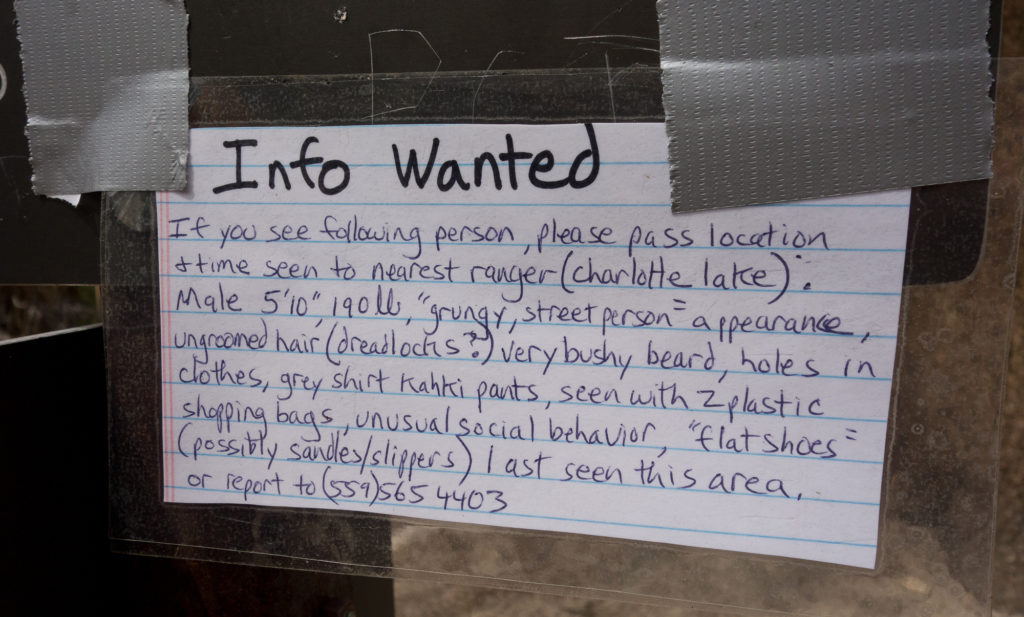 Info Wanted
If you see following person, please pass location
+ time seen to nearest ranger (charlotte lake):
Male 5'10", 190 lb, "grungy, street person" appearance,
ungroomed hair (dreadlocks?) very bushy beard, holes in
clothes, grey shirt Kahki pants, seen with 2 plastic
shopping bags, unusual social behavior, "flat shoes"
(possibly sandles/slippers) last seen this area.
or report to (559) 565 4403